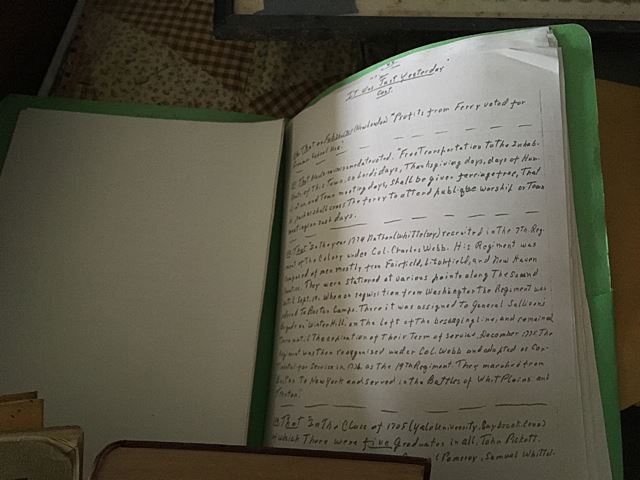 "It Was Just Yesterday"
Cont.
That on (New London) "Profits from Ferry voted for
School Use."
That was voted. "Free Transportation to the Inhab-
itants of this Town, on Lords days, Thanksgiving days, days of Hum-
iliation, and Town meeting days, shall be given ferriage free, That
is shall cross the ferry to attend public worship or Town
meeting on such days.
That "In the year 1774 Nathan (Whittlesey) recruited in the 7th. Reg-
ment of The Colony under Col. Charles Webb. His Regiment was
composed of men mostly from Fairfield, Litchfield, and New Haven
Counties. They were stationed at various points along The Sound
until Sept. 14. When on requisition from Washington The Regiment was
ordered to Boston Camps. There it was assigned to General Sullivan's
Brigade on Winter Hill, on the Left of The besieging line, and remained
there until The expiration of Their Term of service, December 1775. The
Regiment was then reorganized under Col. Webb and adopted as Con-
tinental for Service in 1776. as The 19th Regiment. They marched from
Boston to New York and served in the Battles of Whit Plains and
Trenton."
That "In The Class of 1705 (Yale University, Saybrook, Conn)
which There were five Graduates in all. John Pickett.
Pomroy, Samuel Whittel-